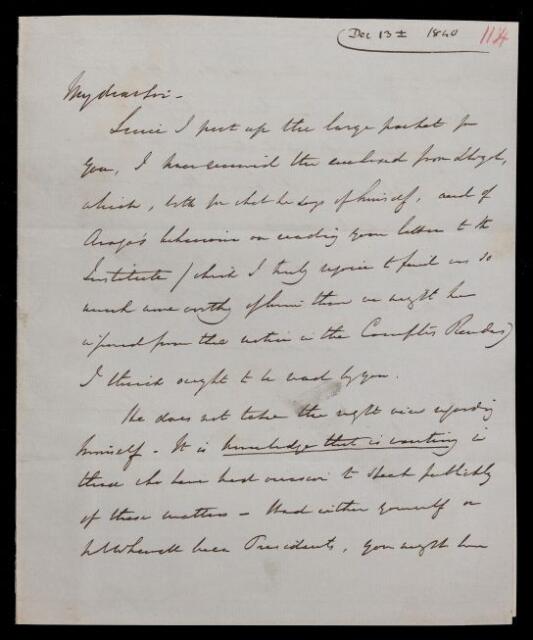 Dec 13± 1840
114
My dear Sir -
Since I put up the large packet for
you, I have received the enclosed from Lloyd,
which, both for what he says of himself, and of
Arago's behaviour on reading your letter to the
Institute (which I truly rejoice to find was so
much more worthy of him than we might have
inferred from the notice in the Comptes Rendus)
I think ought to be read by you.
He does not take the right view regarding
himself. It is knowledge that is wanting in
those who have had occasion to speak publickly
of these matters - Had either yourself or
Mr Whewell been Presidents, you might have